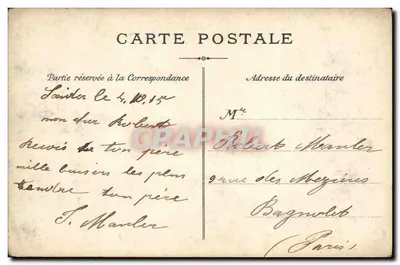 CARTE POSTALE
Partie réservée à la Correspondance
Adresse du destinataire
le 4.10.15
mon cher Robert
reçois de ton père
mille baisers les plus
tendre ton père
Mr
Robert
rue des Mezières
Bagnolet
(Paris)
CARTE